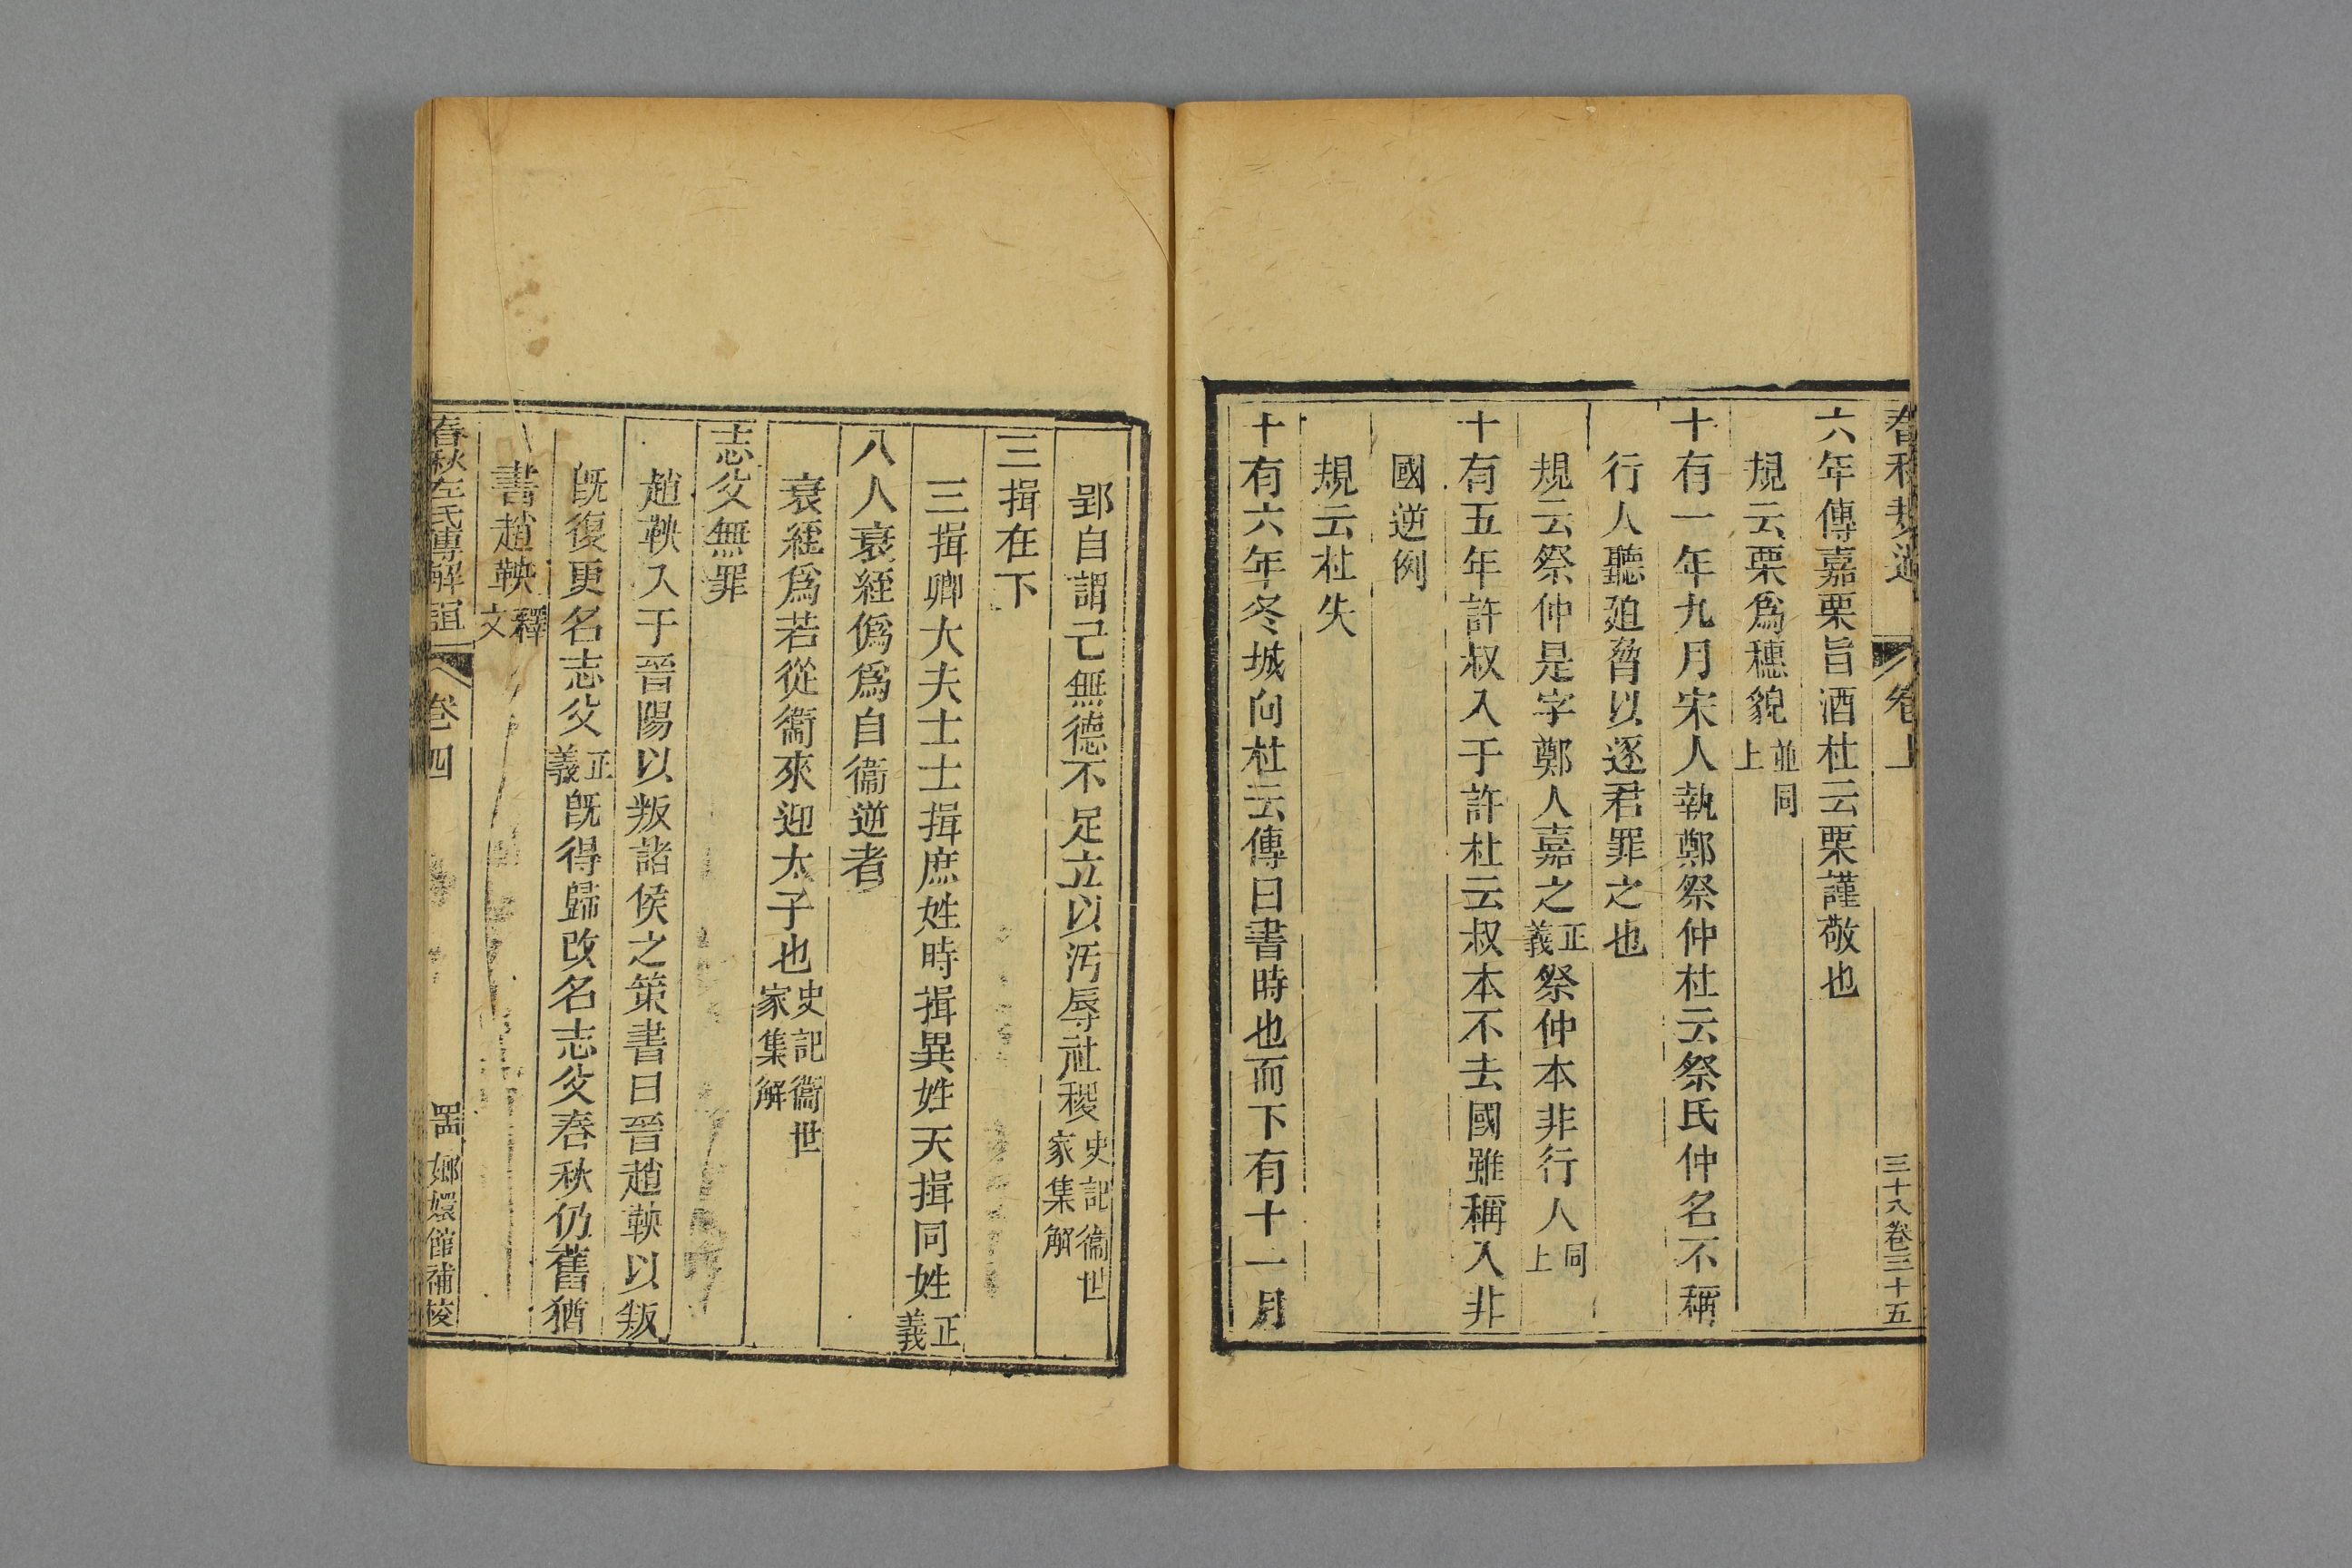 春秋規過 卷上 三十八卷三十五
六年傳嘉栗旨酒杜云栗謹敬也
規云栗爲穗貌並同上
十有一年九月宋人執鄭祭仲杜云祭氏仲名不稱
行人聽廹脅以逐君罪之也
規云祭仲是字鄭人嘉之正義祭仲本非行人同上
十有五年許叔入于許杜云叔本不去國雖稱入非
國逆例
規云杜失
十有六年冬城向杜云傳曰書時也而下有十一月
郢自謂己無德不足立以汚辱社稷史記衞世家集解
三揖在下
三揖卿大夫士土揖庶姓時揖異姓天揖同姓正義
八人衰絰僞爲自衞逆者
衰絰爲若從衞來迎太子也史記衞世家集解
志父無罪
趙鞅入于晉陽以叛諸侯之策書曰晉趙鞅以叛
旣復更名志父正義旣得歸改名志父春秋仍舊猶
書趙鞅釋文
春秋左氏傳解誼 卷四 嫏嬛館補校